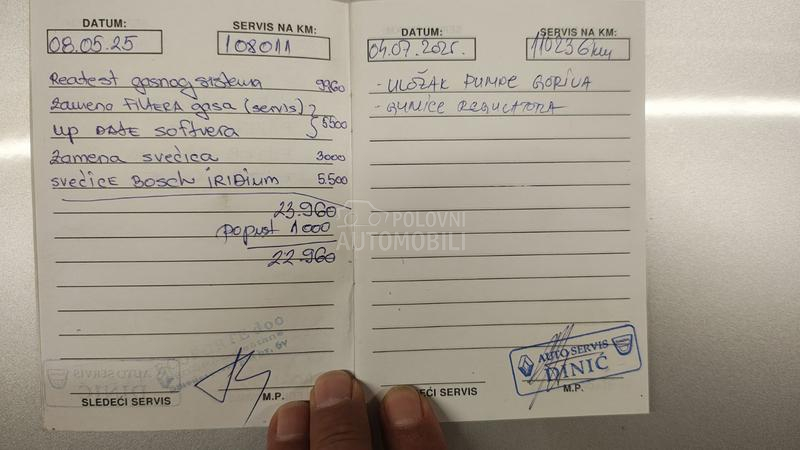 DATUM:
SERVIS NA KM:
08.05.25
108011
Reatest gasnog sistema 9960
Zamena FILTERA gasa (servis)
up DATE softvera 5500
Zamena svećica 3000
svećice BOSCH IRIDIUM 5.500
23.960
popust 1000
22.960
AUTO SERVIS
DINIĆ
SLEDEĆI SERVIS
M.P.
DATUM:
SERVIS NA KM:
04.07.2025.
110236km
- ULOŽAK PUMPE GORIVA
- GUMICE REGULATORA
POLOVNI
AUTOMOBILI
AUTO SERVIS
DINIĆ
EĆI SERVIS
M.P.